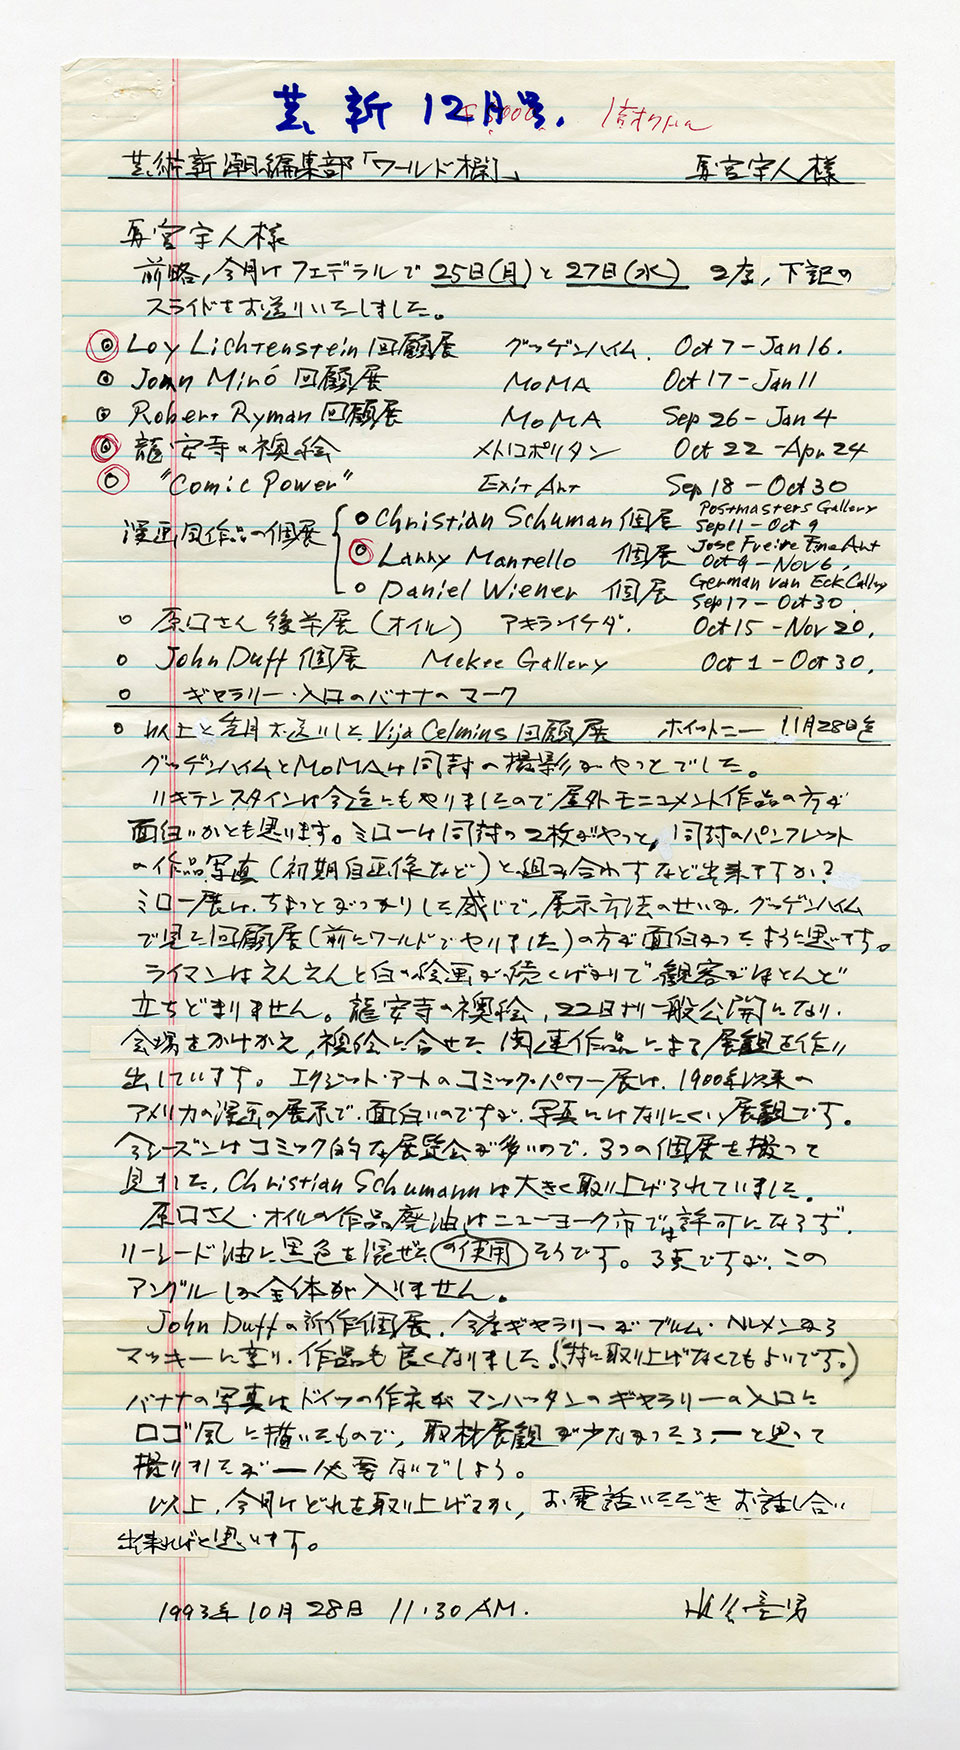 芸新12月号.
芸術新潮編集部「ワールド欄」 馬宮宇人様
馬宮宇人様
前略,今月は フェデラルで 25日(月)と27日(水) 2度,下記の
スライドをお送りいたしました。
Loy Lichtenstein 回顧展 グッゲンハイム. Oct 7-Jan16.
Joan Miró 回顧展 MoMA Oct17-Jan11
Robert Ryman 回顧展 MoMA Sep 26-Jan 4
龍安寺の襖絵 メトロポリタン Oct 22-Apr 24
"Comic Power" Exit Art Sep 18-Oct 30
漫画風作品の個展 Christian Schuman 個展 Postmasters Gallery Sep11-Oct 9
Lanny Mantello 個展 Jose Freire Fine Art Oct 9-Nov 6,
Daniel Wiener 個展 German van Eck Gallery Sep17-Oct 30.
原口さん 個展(オイル) アキライケダ. Oct 15-Nov 20,
John Duff 個展 McKee Gallery Oct 1-Oct 30,
ギャラリー・入口のバナナのマーク
以上と先月お送りした Vija Celmins 回顧展 ホイットニー 11月28日迄
グッゲンハイムとMoMAは同封の撮影がやっとでした。
リキテンスタインは今迄にもやりましたので屋外モニュメント作品の方が
面白いかとも思います。ミローは同封の2枚がやっと,同封のパンフレット
の作品写真(初期自画像など)と組み合わすなど出来ますか?
ミロー展は,ちょっとがっかりした感じで,展示方法のせいか,グッゲンハイム
で見た回顧展(前にワールドでやりました)の方が面白かったように思います。
ライマンはえんえんと白い絵画が続くばかりで観客がほとんど
立ちどまりません。龍安寺の襖絵,22日から一般公開になり,
会場をかけかえ,襖絵に合せた関連作品による展観を作り
出しています。 エクジット・アートのコミック・パワー展は,1900年以来の
アメリカの漫画の展示で,面白いのですが,写真にはなりにくい展観です。
今シーズンはコミック的な展覧会が多いので,3つの個展を撮って
見ました,Christian Schumannは大きく取り上げられていました。
原口さん・オイルの作品廃油はニューヨーク市では許可にならず,
リーシード油に黒色を混ぜたの使用そうです。3点ですが,この
アングルしか全体が入りません。
John Duffの新作個展,今度ギャラリーがブルム・ヘルメンから
マッキーに変り,作品も良くなりました。(特に取り上げなくてもよいです。)
バナナの写真はドイツの作家がマンハッタンのギャラリーの入口に
ロゴ風に描いたもので,取材展観が少なかったら,ーと思って
撮りましたがー必要ないでしょう。
以上,今月はどれを取り上げますか,お電話いただきお話し合い
出来ればと思います。
1993年10月28日 11.30 AM.